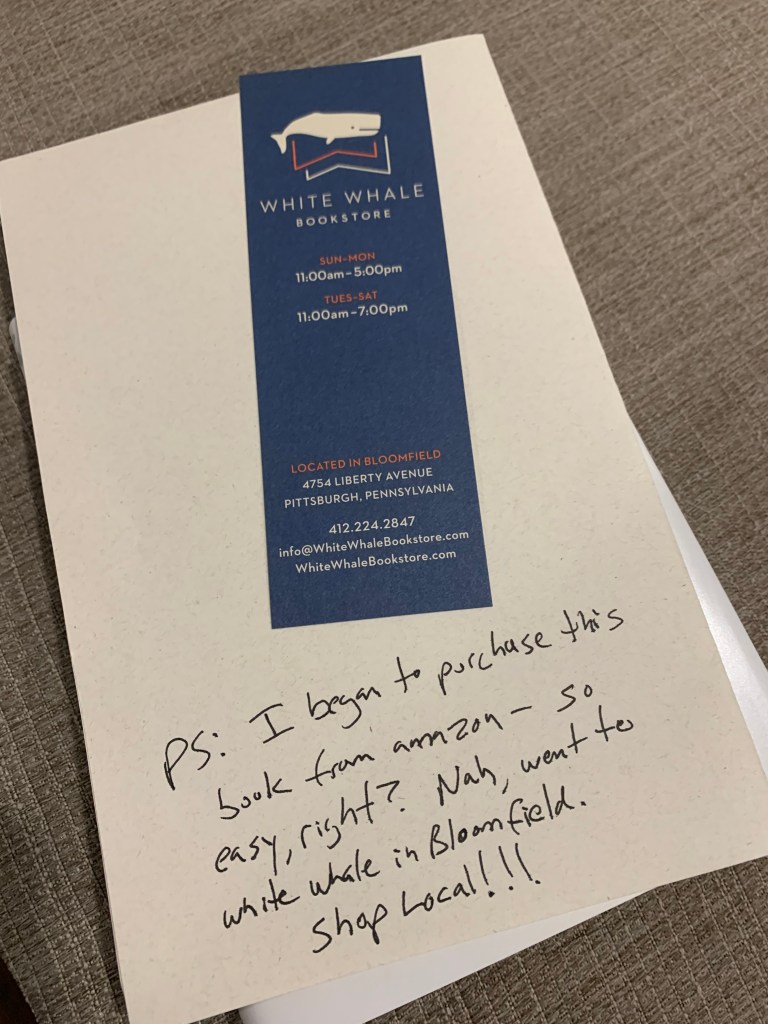 WHITE WHALE
BOOKSTORE
SUN-MON
11:00am-5:00pm
TUES-SAT
11:00am-7:00pm
LOCATED IN BLOOMFIELD
4754 LIBERTY AVENUE
PITTSBURGH, PENNSYLVANIA
412.224.2847
info@WhiteWhaleBookstore.com
WhiteWhaleBookstore.com
PS: I began to purchase this
book from amazon – so
easy, right? Nah, went to
white whale in Bloomfield.
Shop Local!!!